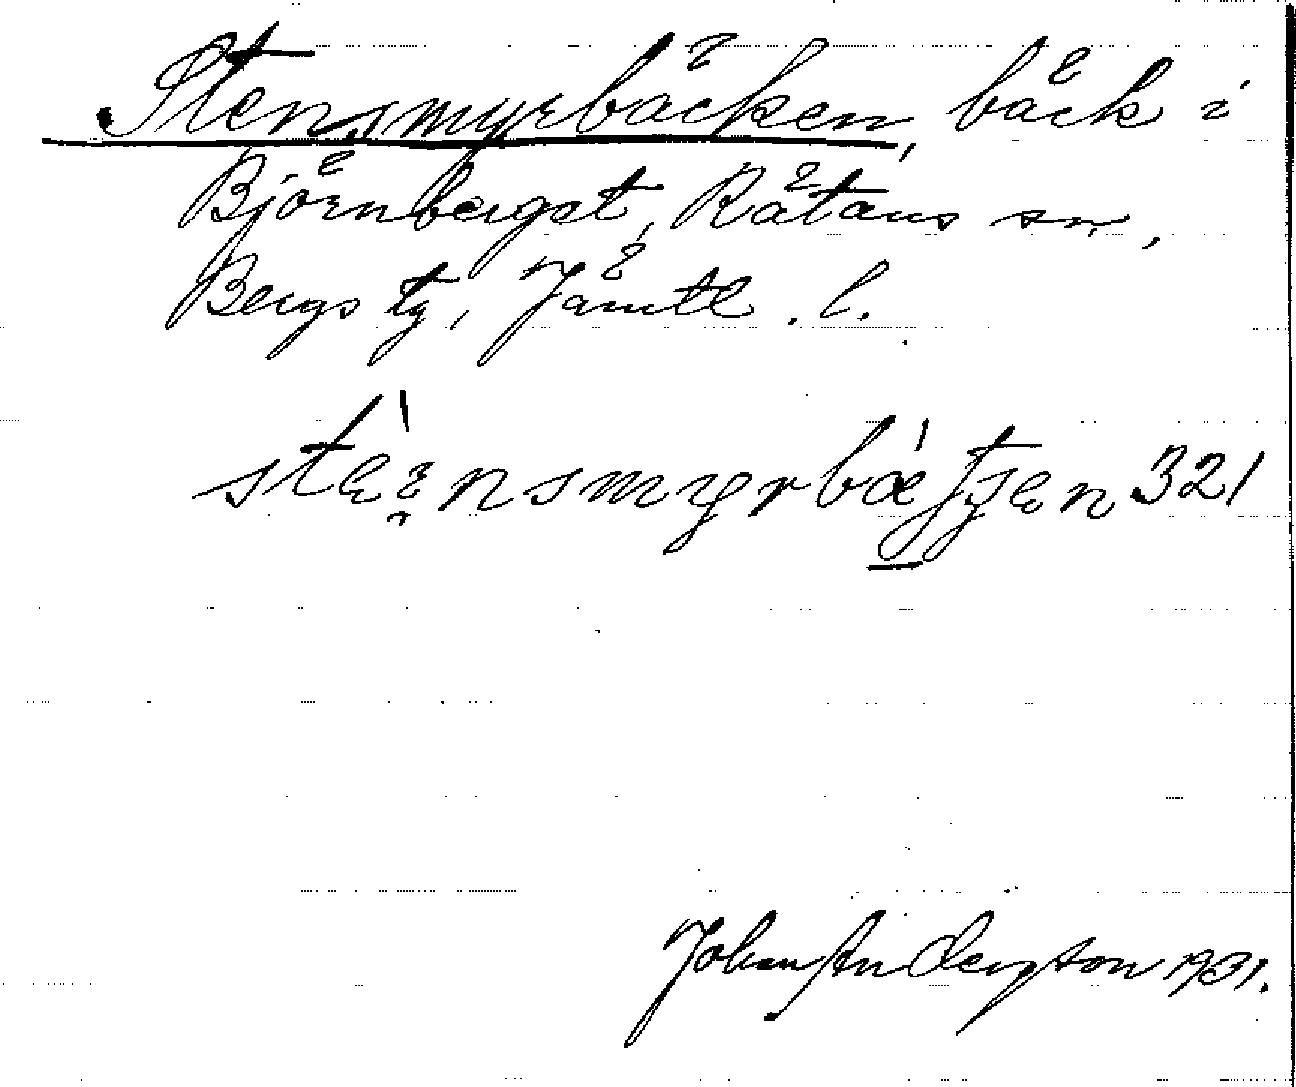 Stensmyrbäcken, bäck i
Björnberget, Rätans sn,
Bergs tg, Jämtl. l.
321
Johan Anderzson 1931.